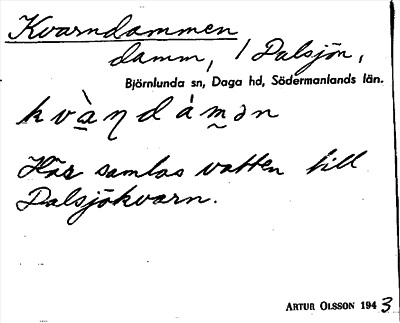 Kvarndammen
damm, i Dalsjön,
Björnlunda sn, Daga hd, Södermanlands län.
kvàɳdámən
Här samlas vatten till
Dalsjökvarn.
ARTUR OLSSON 1943